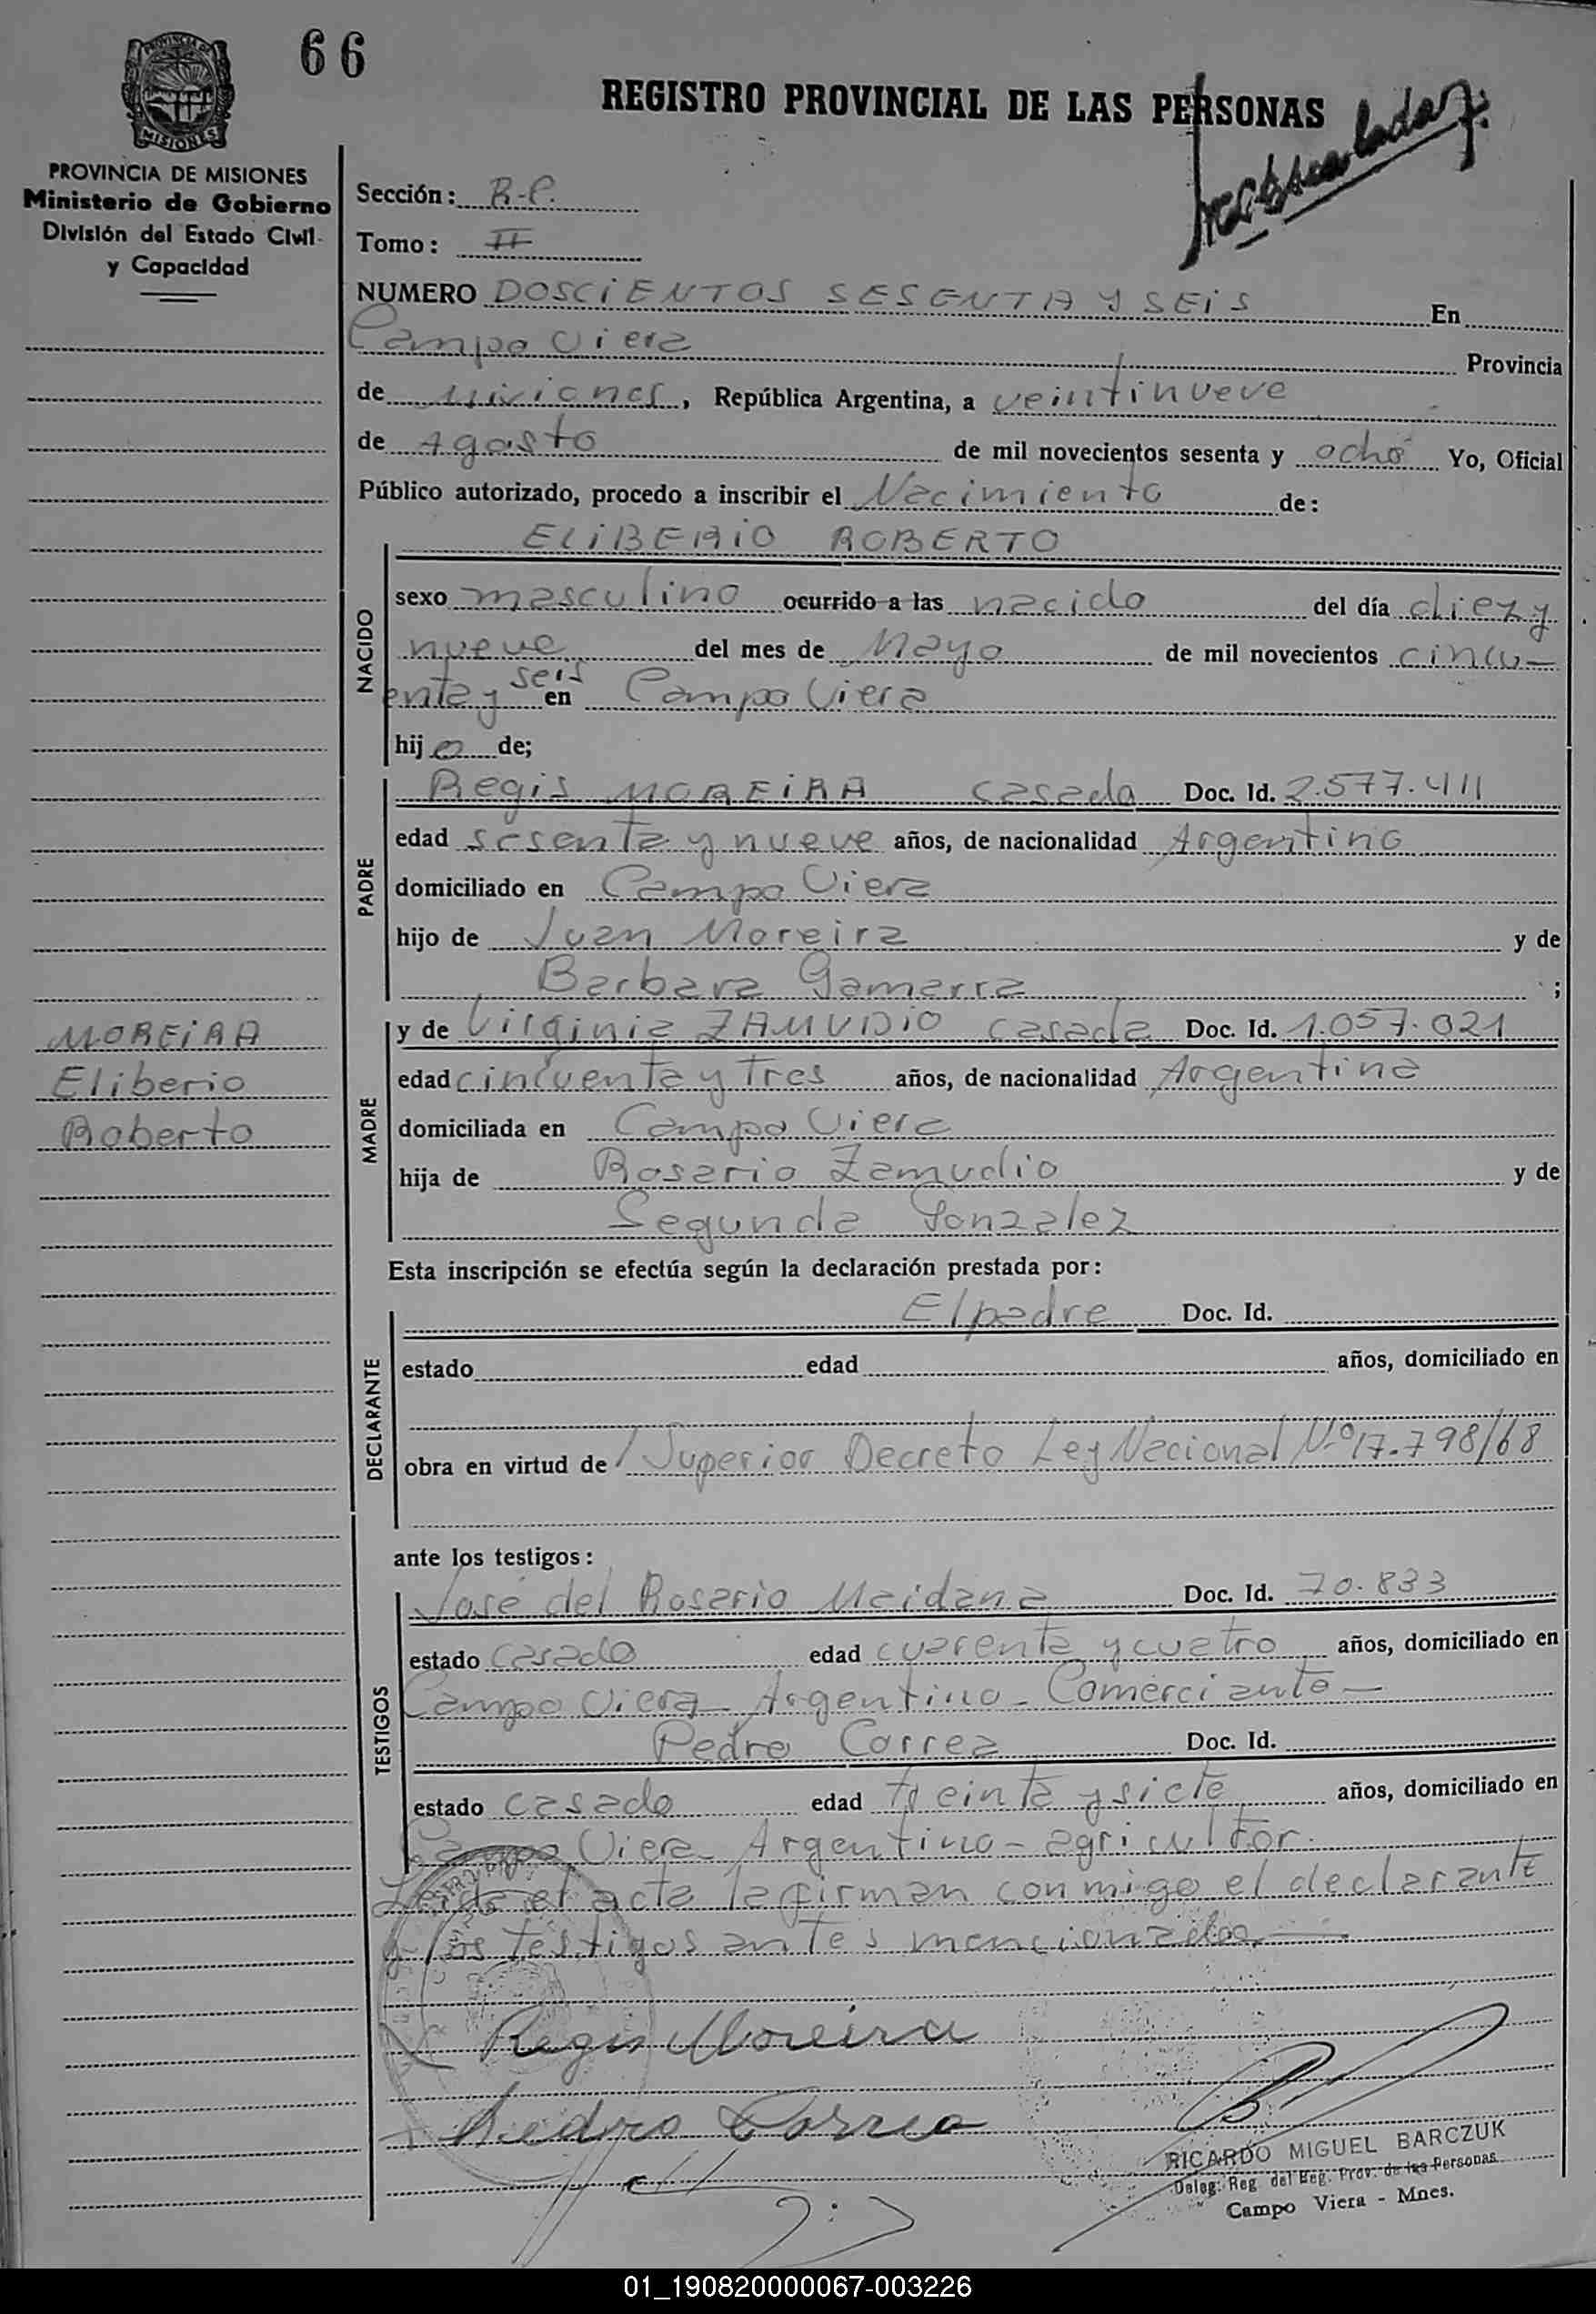 66
PROVINCIA DE
MISIONES
REGISTRO PROVINCIAL DE LAS PERSONAS
PROVINCIA DE MISIONES
Ministerio de Gobierno
División del Estado Civil
y Capacidad
Sección: R.P.
Tomo: II
NUMERO DOSCIENTOS SESENTA Y SEIS En
Campo Viera Provincia
de Misiones, República Argentina, a veintinueve
de Agosto de mil novecientos sesenta y ocho Yo, Oficial
Público autorizado, procedo a inscribir el Nacimiento de:
NACIDO
ELIBERIO ROBERTO
sexo masculino ocurrido a las nacido del día diez y
nueve del mes de Mayo de mil novecientos cincu-
enta y seis en Campo Viera
hijo de;
PADRE
Regis MOREIRA casado Doc. Id. 2.577.411
edad sesenta y nueve años, de nacionalidad Argentino
domiciliado en Campo Viera
hijo de Juan Moreira y de
Barbara Gamarra ;
MOREIRA
Eliberio
Roberto
MADRE
y de Virginia ZAMUDIO casada Doc. Id. 1.057.021
edad cincuenta y tres años, de nacionalidad Argentina
domiciliada en Campo Viera
hija de Rosario Zamudio y de
Segunda Gonzalez
Esta inscripción se efectúa según la declaración prestada por:
DECLARANTE
El padre Doc. Id.
estado edad años, domiciliado en
obra en virtud de Superior Decreto Ley Nacional Nº 17.798/68
ante los testigos:
TESTIGOS
José del Rosario Maidana Doc. Id. 70.833
estado casado edad cuarenta y cuatro años, domiciliado en
Campo Viera Argentino - Comerciante -
Pedro Correa Doc. Id.
estado casado edad treinta y siete años, domiciliado en
Campo Viera Argentino - agricultor.
Leida el acta la firman conmigo el declarante
y los testigos antes mencionados.
Regis Moreira
Pedro Correa
RICARDO MIGUEL BARCZUK
Deleg. Reg. del Reg. Prov. de las Personas
Campo Viera - Mnes.
01_190820000067-003226